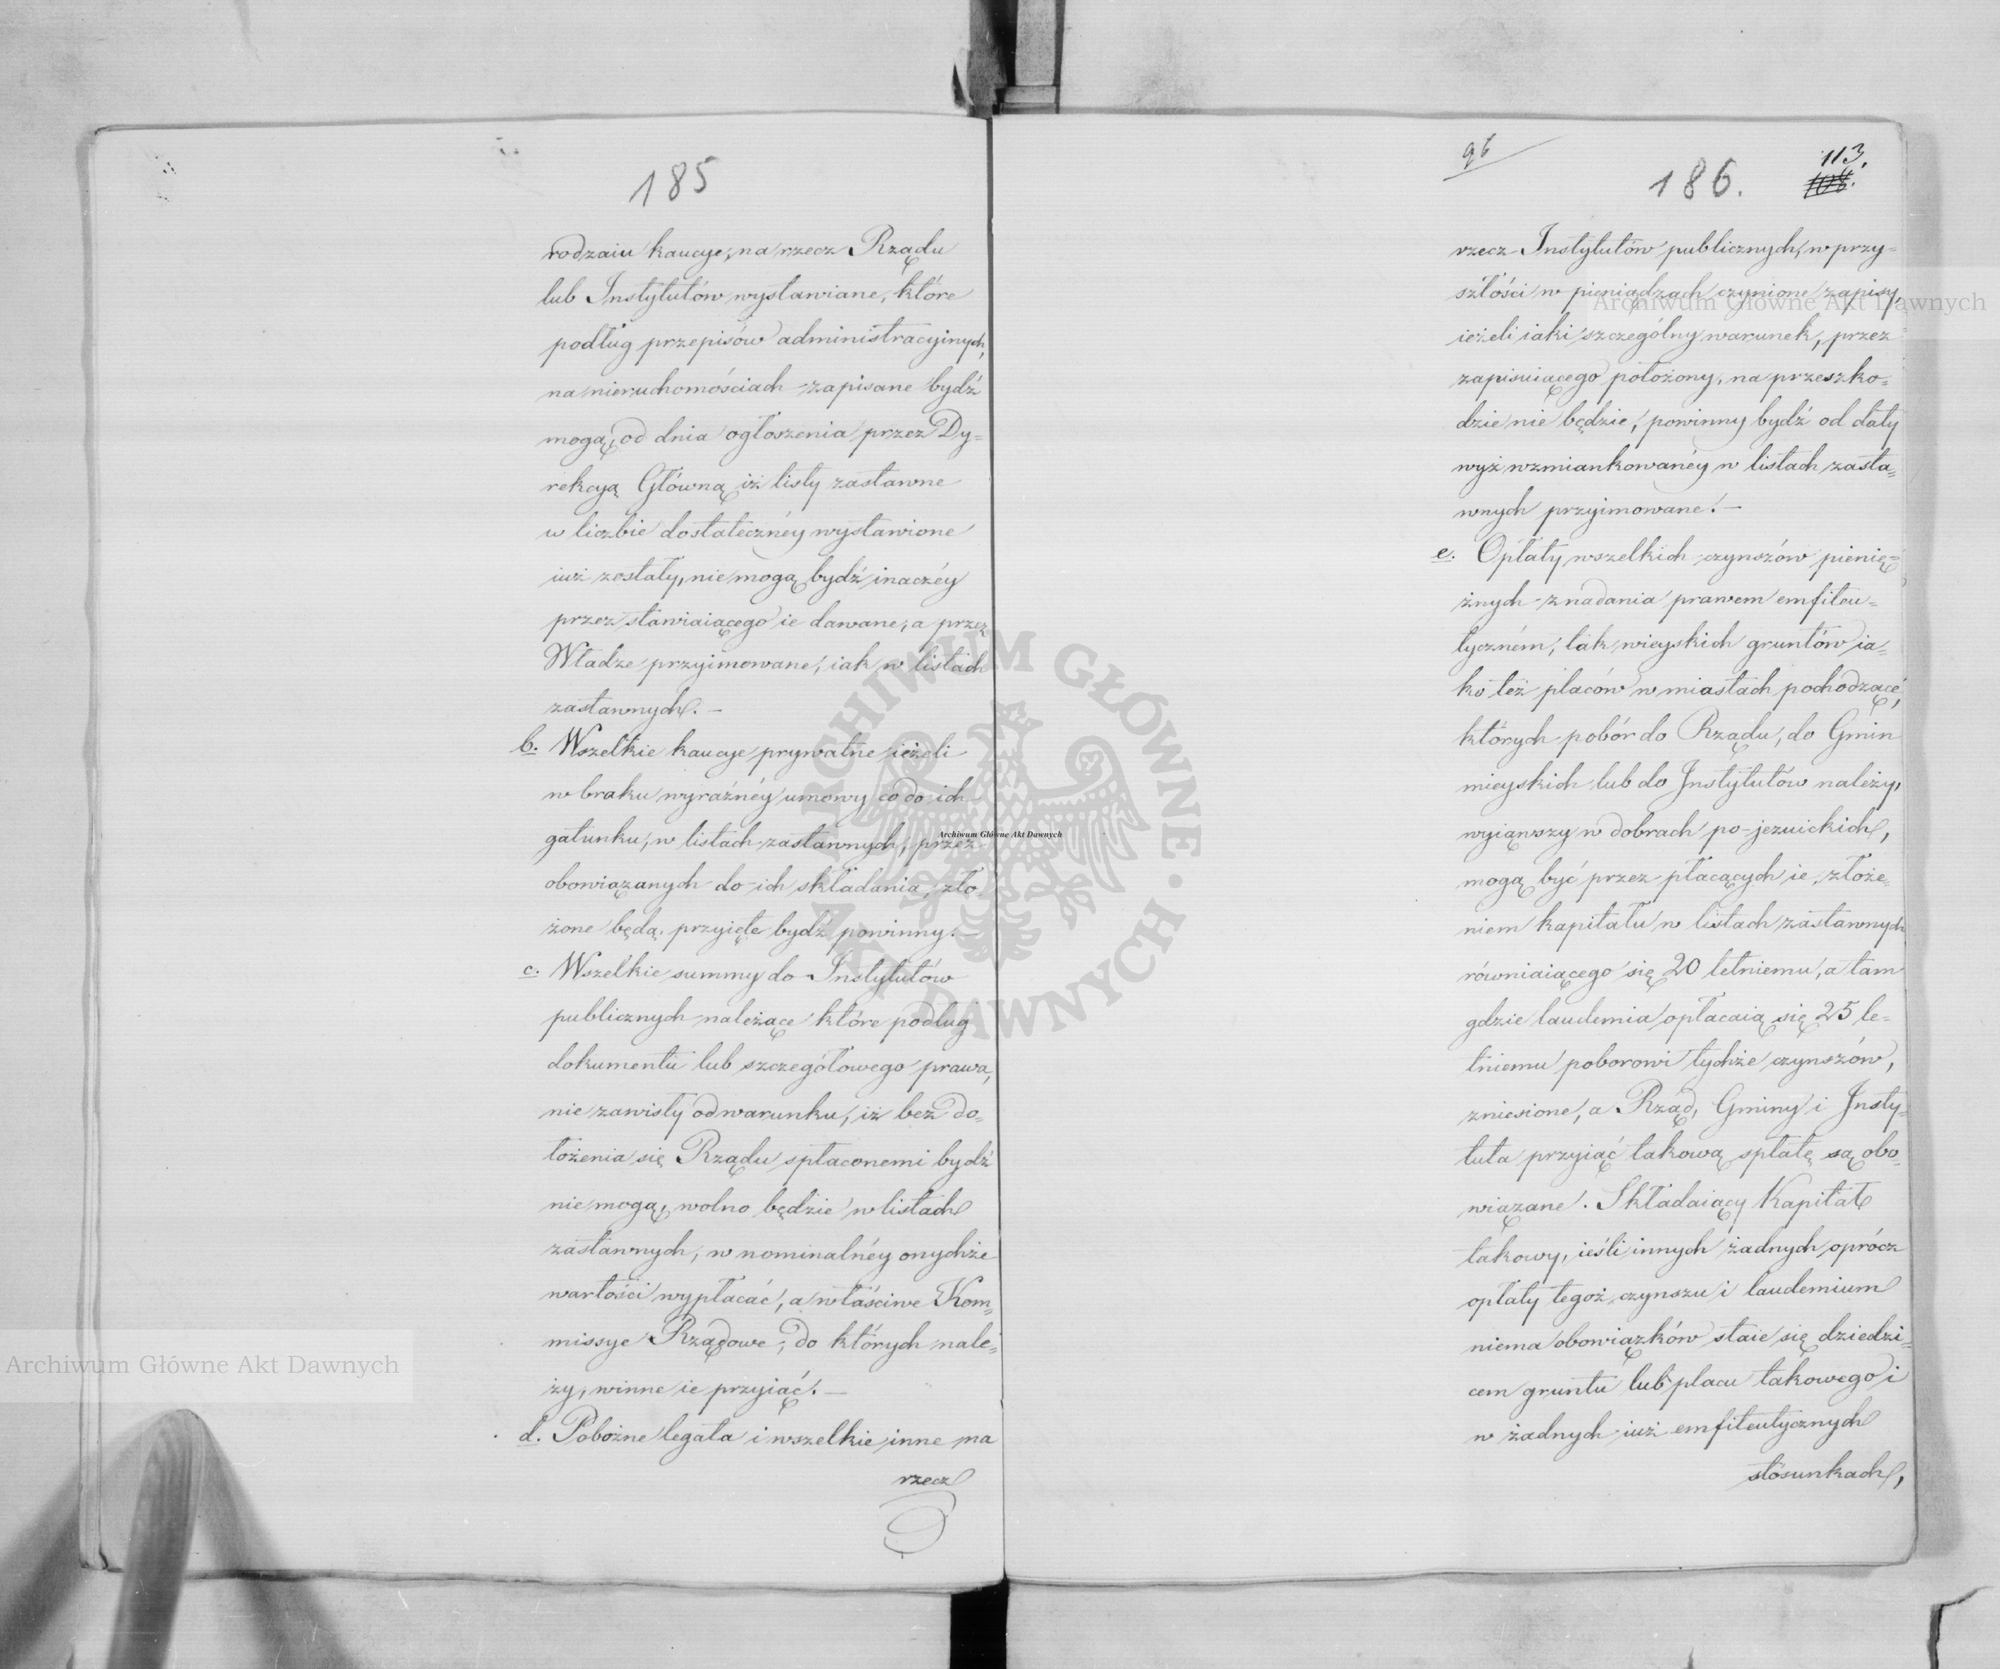 185
rodzaiu kaucye, na rzecz Rządu
lub Instytutów wystawiane, które
podług przepisów administracyinych,
na nieruchomościach zapisane bydź
mogą, od dnia ogłoszenia przez Dy=
rekcyą Główną iż listy zastawne
w liczbie dostatecznéy wystawione
iuż zostały, nie mogą bydź inaczéy
przez stawiaiącego ie dawane, a przez
Władze przyimowane, iak w listach
zastawnych. —
b. Wszelkie kaucye prywatne ieżeli
w braku wyraźnéy umowy co do ich
gatunku, w listach zastawnych, przez
obowiązanych do ich składania, zło
żone będą, przyięte bydź powinny. —
c. Wszelkie summy do Instytutów
publicznych należące które podług
dokumentu lub szczegółowego prawa,
nie zawisły od warunku, iż bez do-
łożenia się Rządu spłaconemi bydź
nie mogą, wolno będzie w listach
zastawnych, w nominalnéy onychże
wartości wypłacać, a właściwe Kom=
missye Rządowe, do których nale=
ży, winne ie przyiąć. —
d. Pobożne legata i wszelkie inne na
rzecz
96
186.
113.
108.
rzecz Instytutów publicznych, w przy=
szłości w pieniądzach czynione zapisy,
ieżeli iaki szczególny warunek, przez
zapisuiącego położony, na przeszko=
dzie nie będzie, powinny bydź od daty
wyż wzmiankowanéy w listach zasta=
wnych przyimowane. —
e. Opłaty wszelkich czynszów pienię=
żnych z nadania prawem emfiteu=
tyczném, tak wieyskich gruntów ia=
ko też placów w miastach pochodzące,
których pobór do Rządu, do Gmin
mieyskich lub do Instytutów należy,
wyiąwszy w dobrach po-jezuickich,
mogą być przez płacących ie, złoże=
niem kapitału w listach zastawnych
równiaiącego się 20 letniemu, a tam
gdzie laudemia opłacaią się 25 le=
tniemu poborowi tychże czynszów,
zniesione, a Rząd, Gminy i Insty=
tuta przyiąć takową spłatę są obo-
wiązane. Składaiący Kapitał
takowy, ieśli innych żadnych oprócz
opłaty tegoż czynszu i laudemium
niema obowiązków staie się dziedzi=
cem gruntu lub placu takowego i
w żadnych iuż emfiteutycznych
stosunkach,
Archiwum Główne Akt Dawnych
Archiwum Główne Akt Dawnych
Archiwum Główne Akt Dawnych
ARCHIWUM GŁÓWNE · AKT DAWNYCH ·